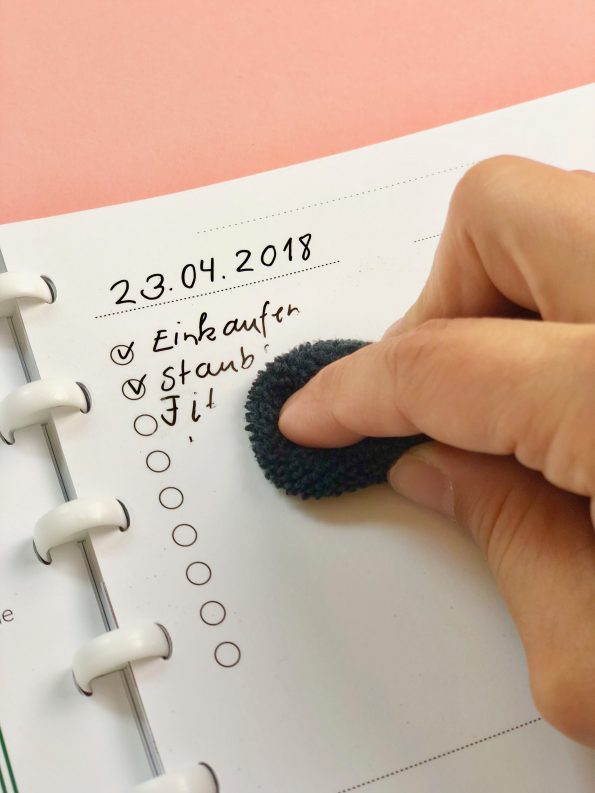 23.04.2018
Einkaufen
Staub
Fit
e